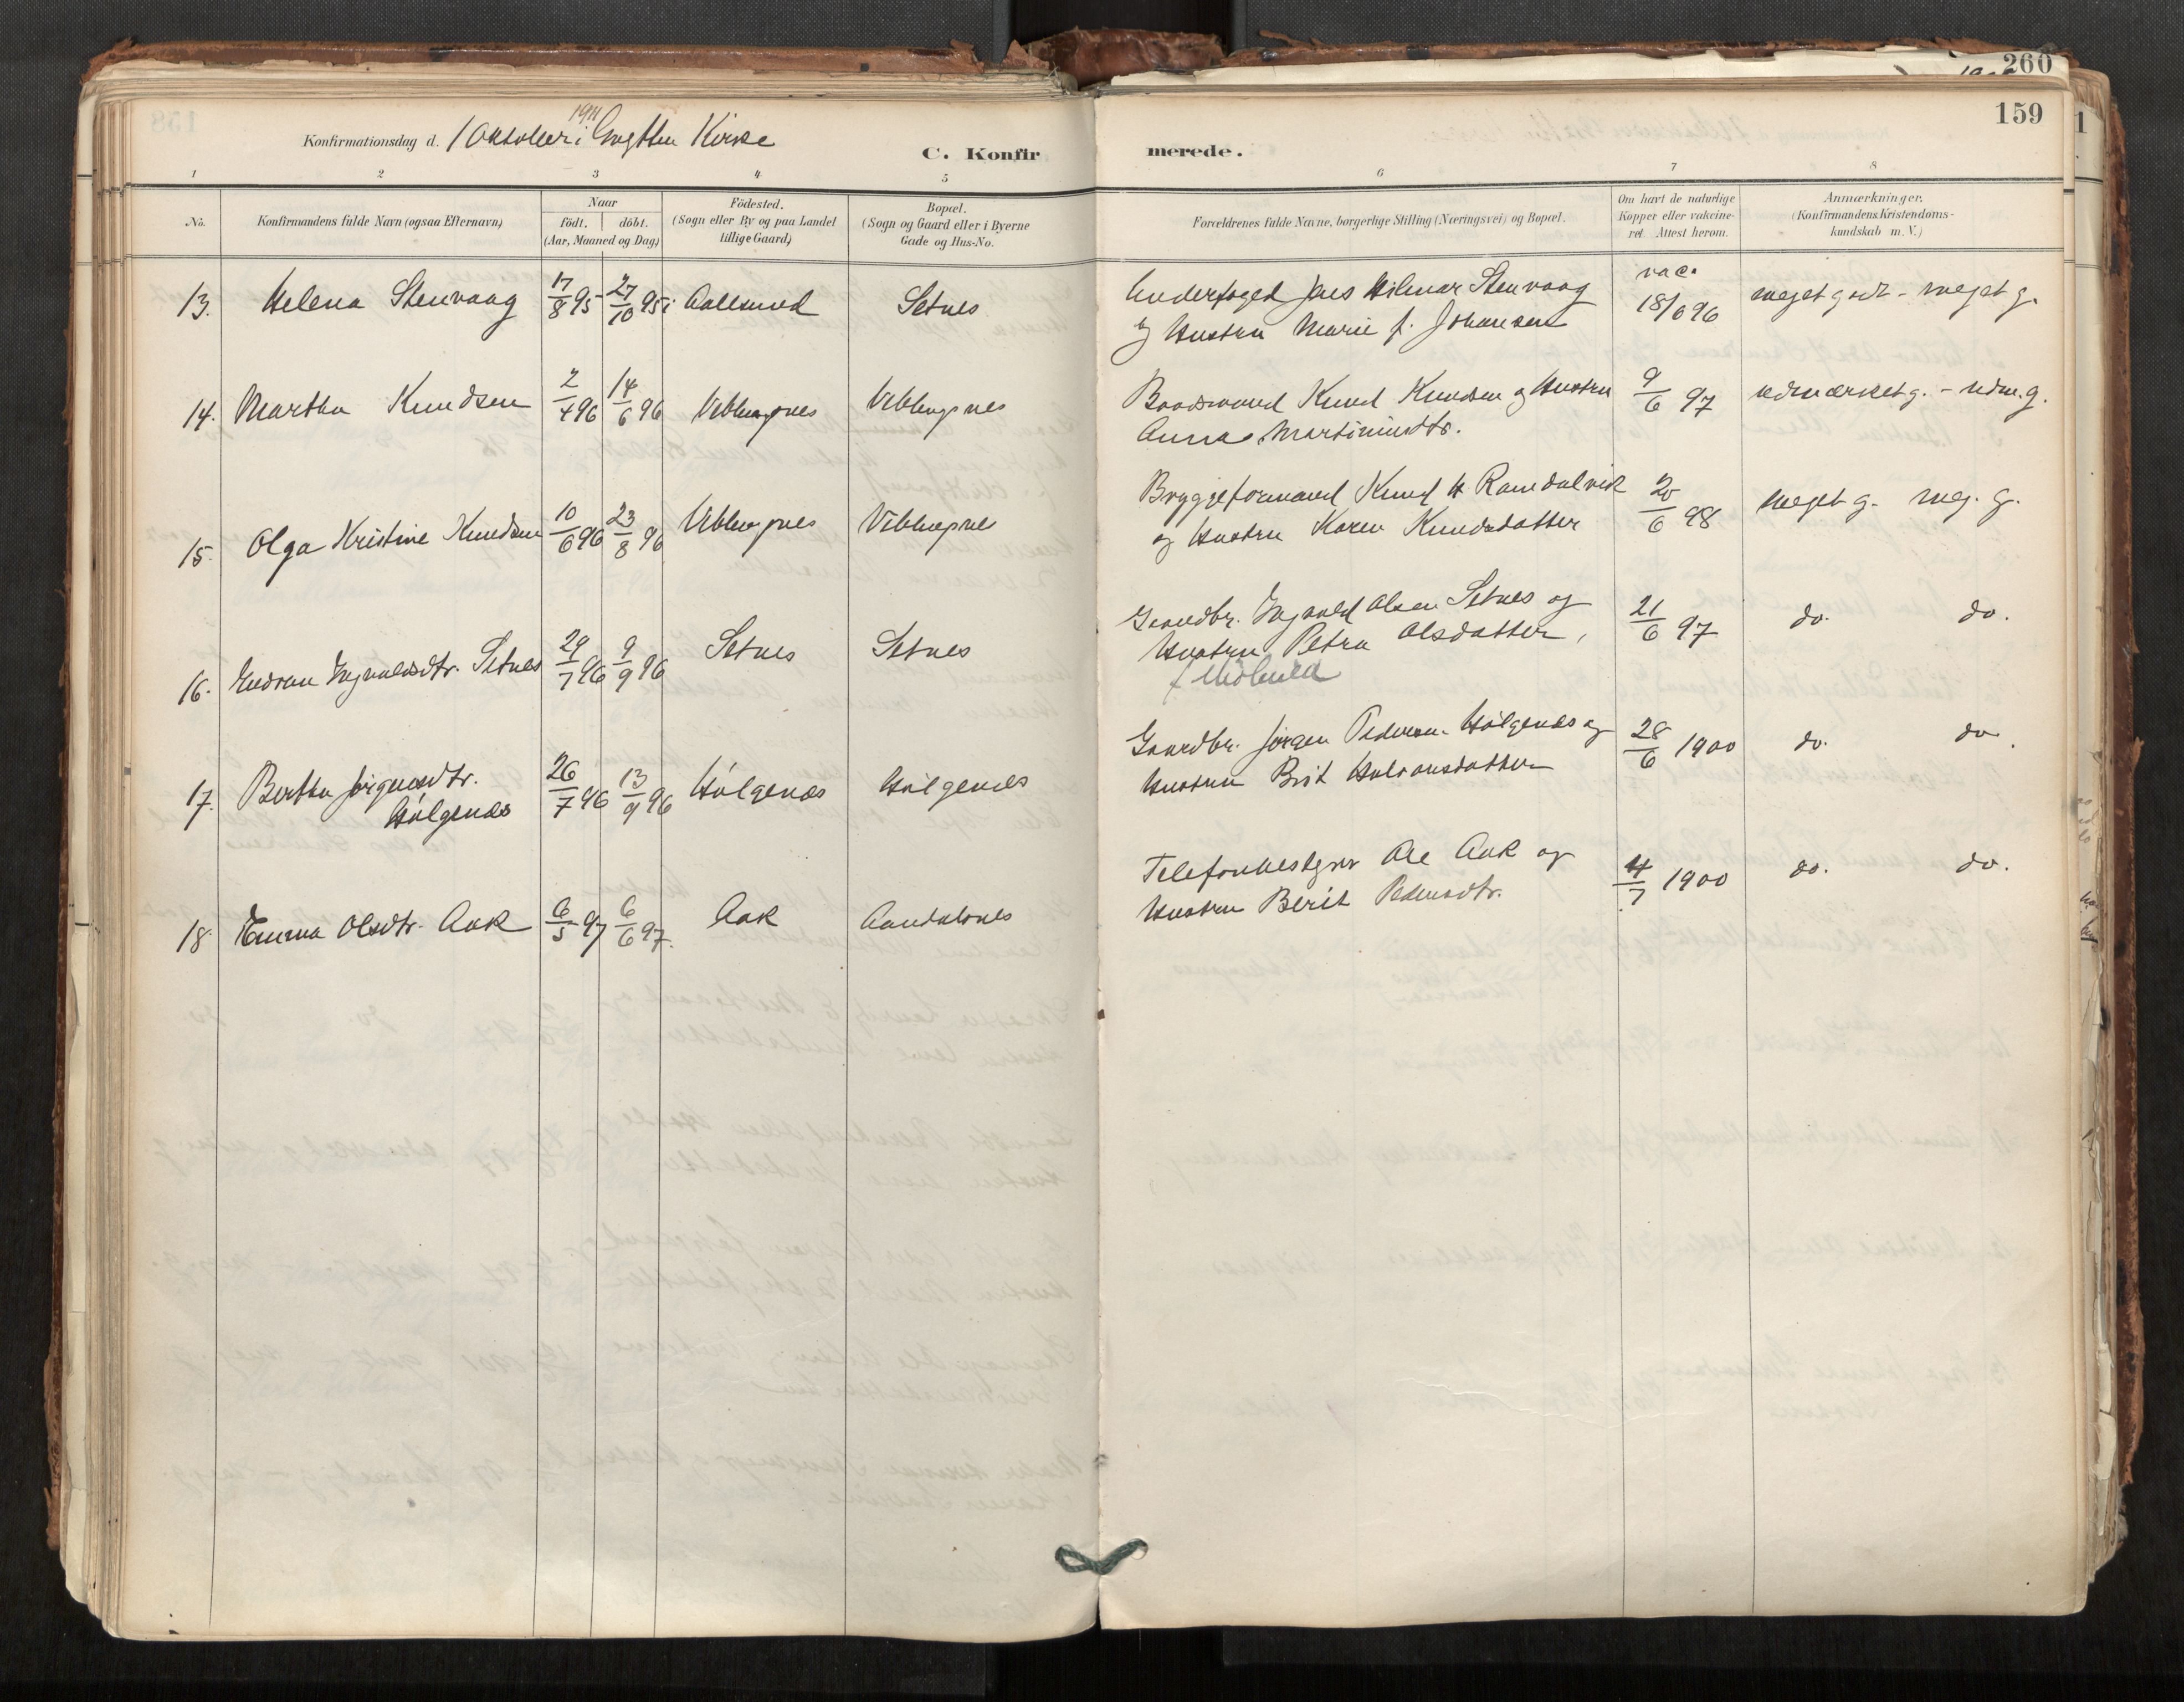 260
159
1911
Konfirmationsdag d. 1 Oktober i Grytten Kirke
C. Konfirmerede.
1 2 3 4 5 6 7 8
No.
Konfirmandens fulde Navn (ogsaa Efternavn)
Naar
födt. döbt.
(Aar, Maaned og Dag)
Födested.
(Sogn eller By og paa Landet
tillige Gaard)
Bopæl.
(Sogn og Gaard eller i Byerne
Gade og Hus-No.
Forældrenes fulde Navne, borgerlige Stilling (Næringsvei) og Bopæl.
Om havt de naturlige
Kopper eller vakcine-
ret. Attest herom.
Anmærkninger.
(Konfirmandens Kristendoms-
kundskab m. V.)
13. Helena Stenvaag 17/8 95 27/10 95 i Aalesund Setnes
Underfoged Jens Hilmar Stenvaag
og Hustru Marie f. Johansen
vac.
18/6 96
meget godt - meget g.
14. Martha Knudsen 2/4 96 14/6 96 Veblungsnes Veblungsnes
Baadsmand Knud Knudsen og Hustru
Anna Martinusdtr.
9/6 97
udmærket g. - udm. g.
15. Olga Kristine Knudsen 10/6 96 23/8 96 Veblungsnes Veblungsnes
Bryggeformand Knud H Romsdalvik
og Hustru Karen Knudsdatter
20/6 98
meget g. meg. g.
16. Gudrun Ingvaldsdtr. Setnes 29/7 96 9/9 96 Setnes Setnes
Gaardbr. Ingvald Olsen Setnes og
Hustru Petra Olsdatter,
21/6 97
do. do.
17. Bertha Jörgensdtr.
Hólgenæs
26/7 96 13/9 96 Hólgenæs Hólgenæs
Gaardbr. Jörgen Pedersen Hólgenæs og
Hustru Brit Halvorsdatter
28/6 1900
do. do.
18. Emma Olsdtr. Aak 6/5 97 6/6 97. Aak Aandalsnes
Telefonbestyrer Ole Aak og
Hustru Berit Pedersdtr.
4/7 1900
do. do.